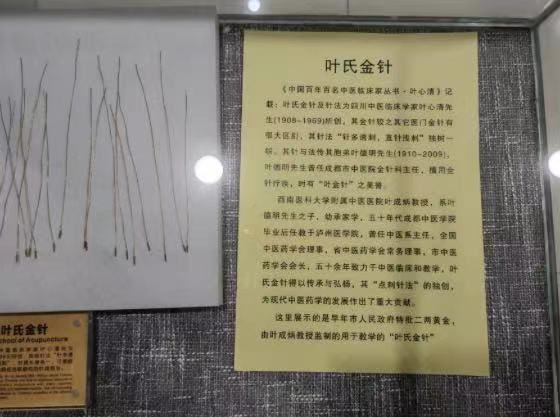 叶氏金针
《中国百年百名中医临床家丛书·叶心清》记
载：叶氏金针及针法为四川中医临床学家叶心清先
生(1908-1969)所创，其金针较之其它医门金针有
很大区别，其针法“针多透刺，直针浅刺”独树一
帜。其针与法传其胞弟叶德明先生(1910~2009)，
叶德明先生曾任成都市中医院金针科主任，擅用金
针疗疾，时有“叶金针”之美誉。
西南医科大学附属中医医院叶成炳教授，系叶
德明先生之子，幼承家学，五十年代成都中医学院
毕业后任教于泸州医学院，曾任中医系主任，全国
中医药学会理事，省中医药学会常务理事，市中医
药学会会长，五十余年致力于中医临床和教学，叶
氏金针得以传承与弘杨，其“点刺针法”的独创，
为现代中医药学的发展作出了重大贡献。
这里展示的是早年市人民政府特批二两黄金，
由叶成炳教授监制的用于教学的“叶氏金针”
叶氏金针
School of Acupuncture